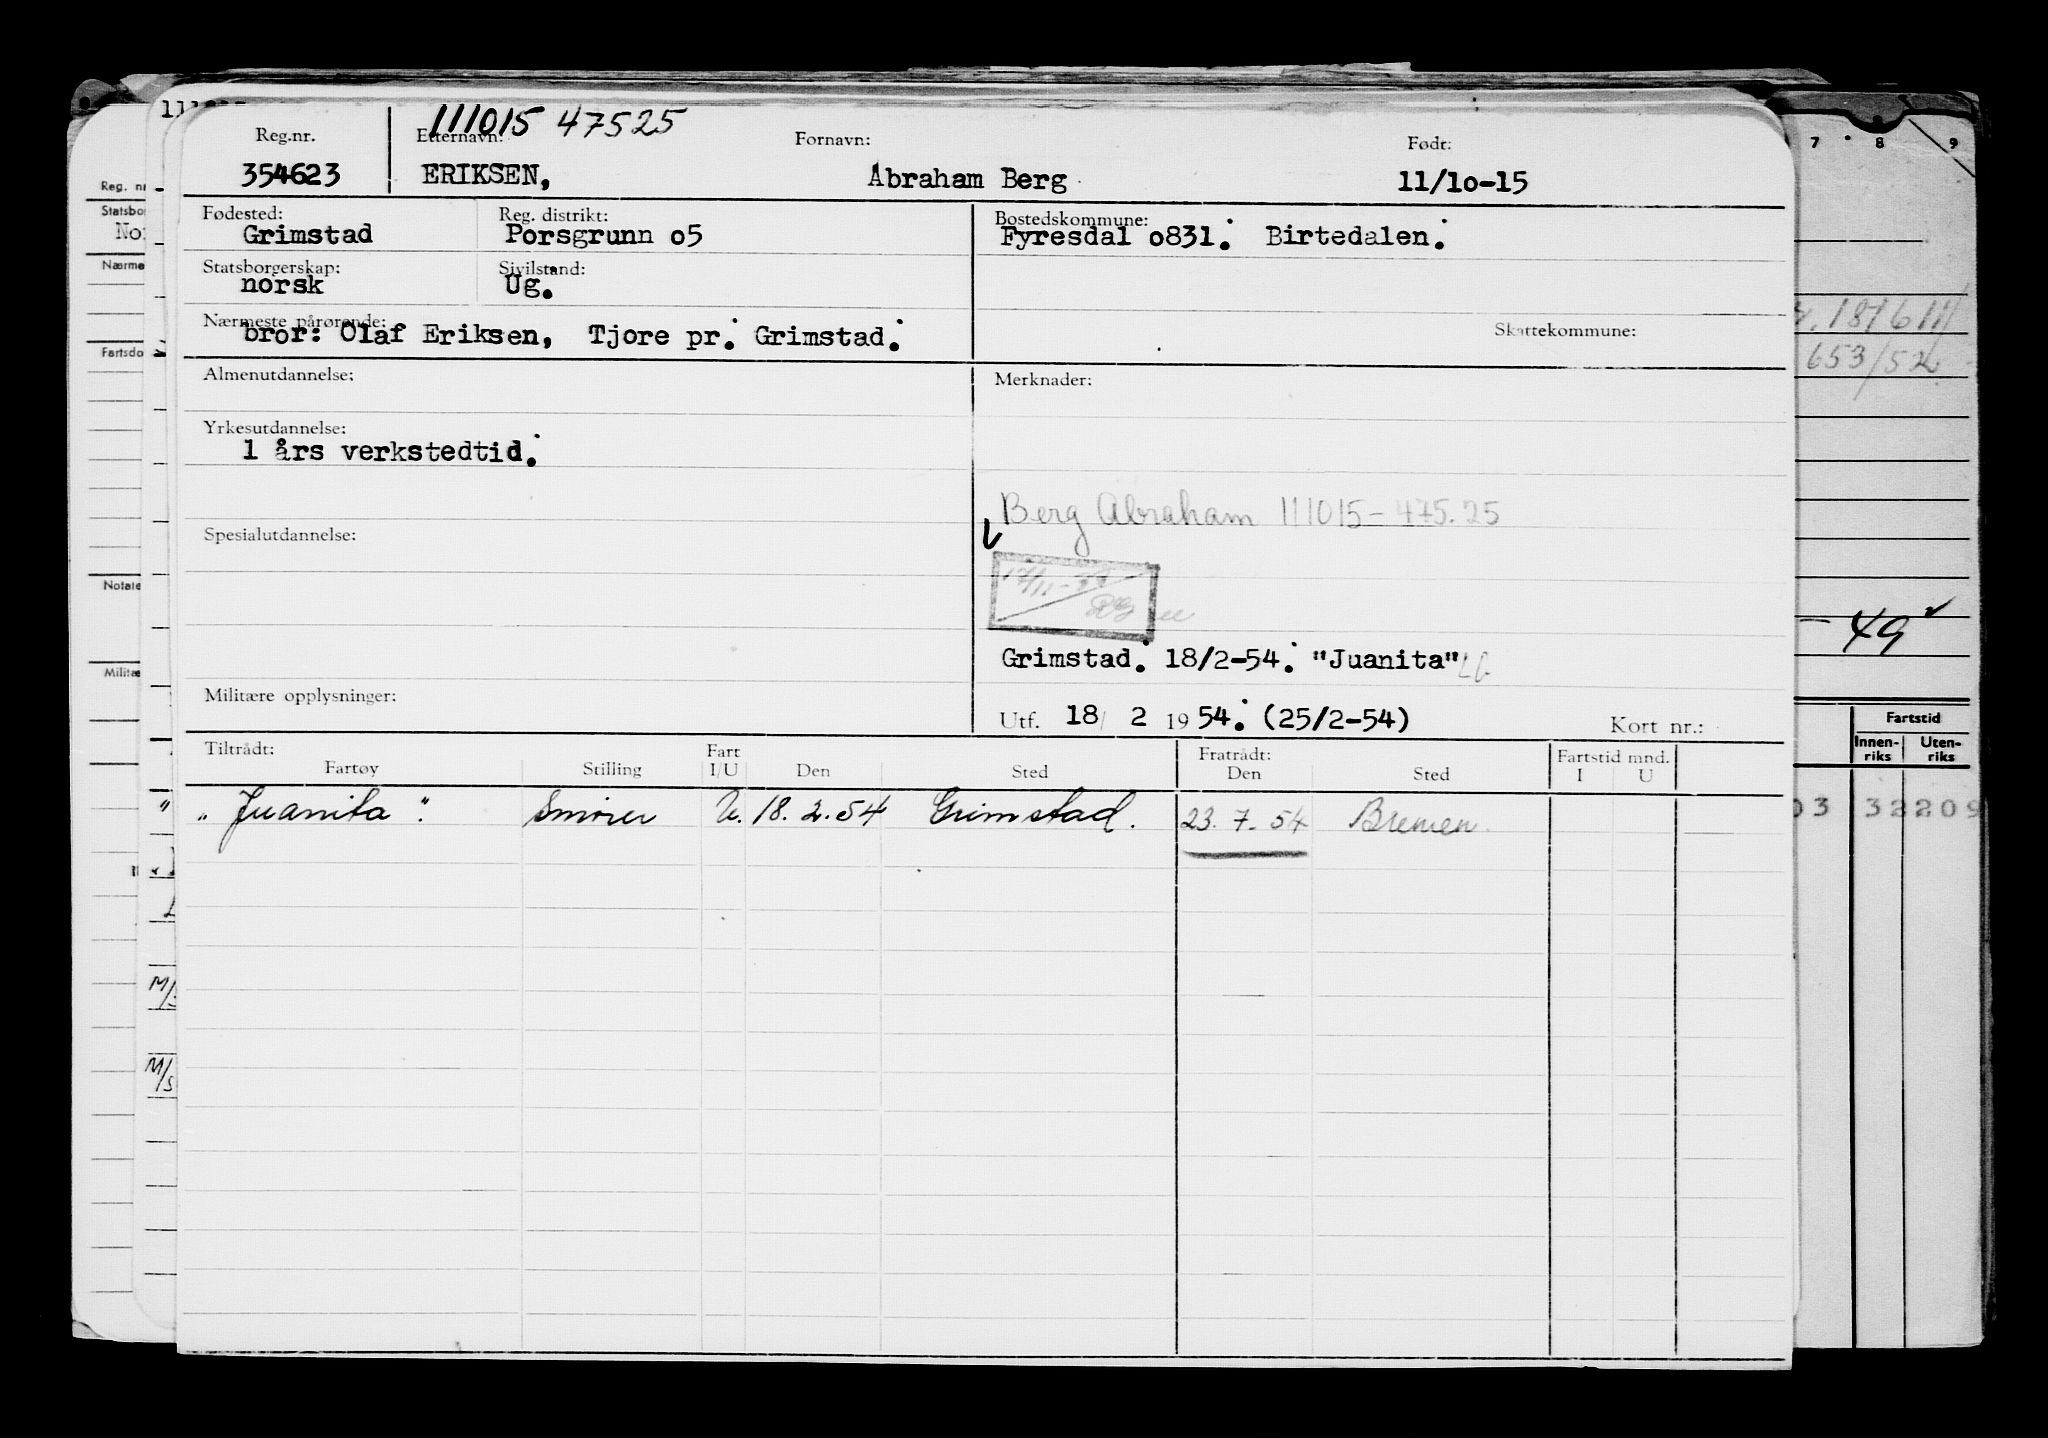 111015 47525
Reg.nr. Etternavn: Fornavn: Født:
354623 ERIKSEN, Abraham Berg 11/10-15
Fødested: Reg. distrikt: Bostedskommune:
Grimstad Porsgrunn o5 Fyresdal o831. Birtedalen.
Statsborgerskap: Sivilstand:
norsk Ug.
Nærmeste pårørende: Skattekommune:
bror: Olaf Eriksen, Tjore pr. Grimstad.
Almenutdannelse: Merknader:
Yrkesutdannelse:
1 års verkstedtid.
Berg Abraham 111015-475.25
Spesialutdannelse:
Grimstad. 18/2-54. "Juanita"
Militære opplysninger:
Utf. 18/ 2 1954. (25/2-54) Kort nr.:
Tiltrådt: Fart Fratrådt: Fartstid mnd.
Fartøy Stilling I/U Den Sted Den Sted I U
"Juanita". Smører U. 18.2.54 Grimstad. 23.7.54 Bremen.
Reg. nr
Statsbo
Nærme
Fartsdo
Notate
Militæ
M/
M/s
7 8 9
653/52
- 49
Fartstid
Innen-riks Uten-riks
03 32209